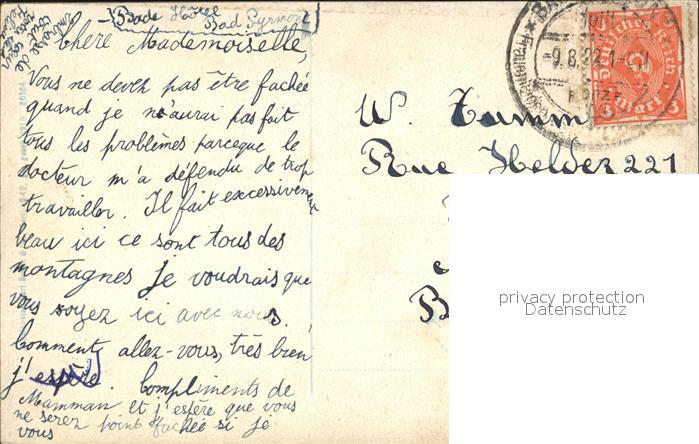 Bade Hôtel
Bad Pyrmont
Chère Mademoiselle,
Vous ne devez pas être fachée
quand je n'aurai pas fait
tous les problèmes parceque le
docteur m'a défendu de trop
travailler. Il fait excessivement
beau ici ce sont tous des
montagnes je voudrais que
vous soyez ici avec nous.
Comment allez-vous, très bien
j'espère. Compliments de
Mamman et j'espère que vous
ne serez point fachée si je
vous
W.
Rue Helder 221
B
-9.8.22.1-
Deutsches Reich
3 Mark 3
privacy protection
Datenschutz